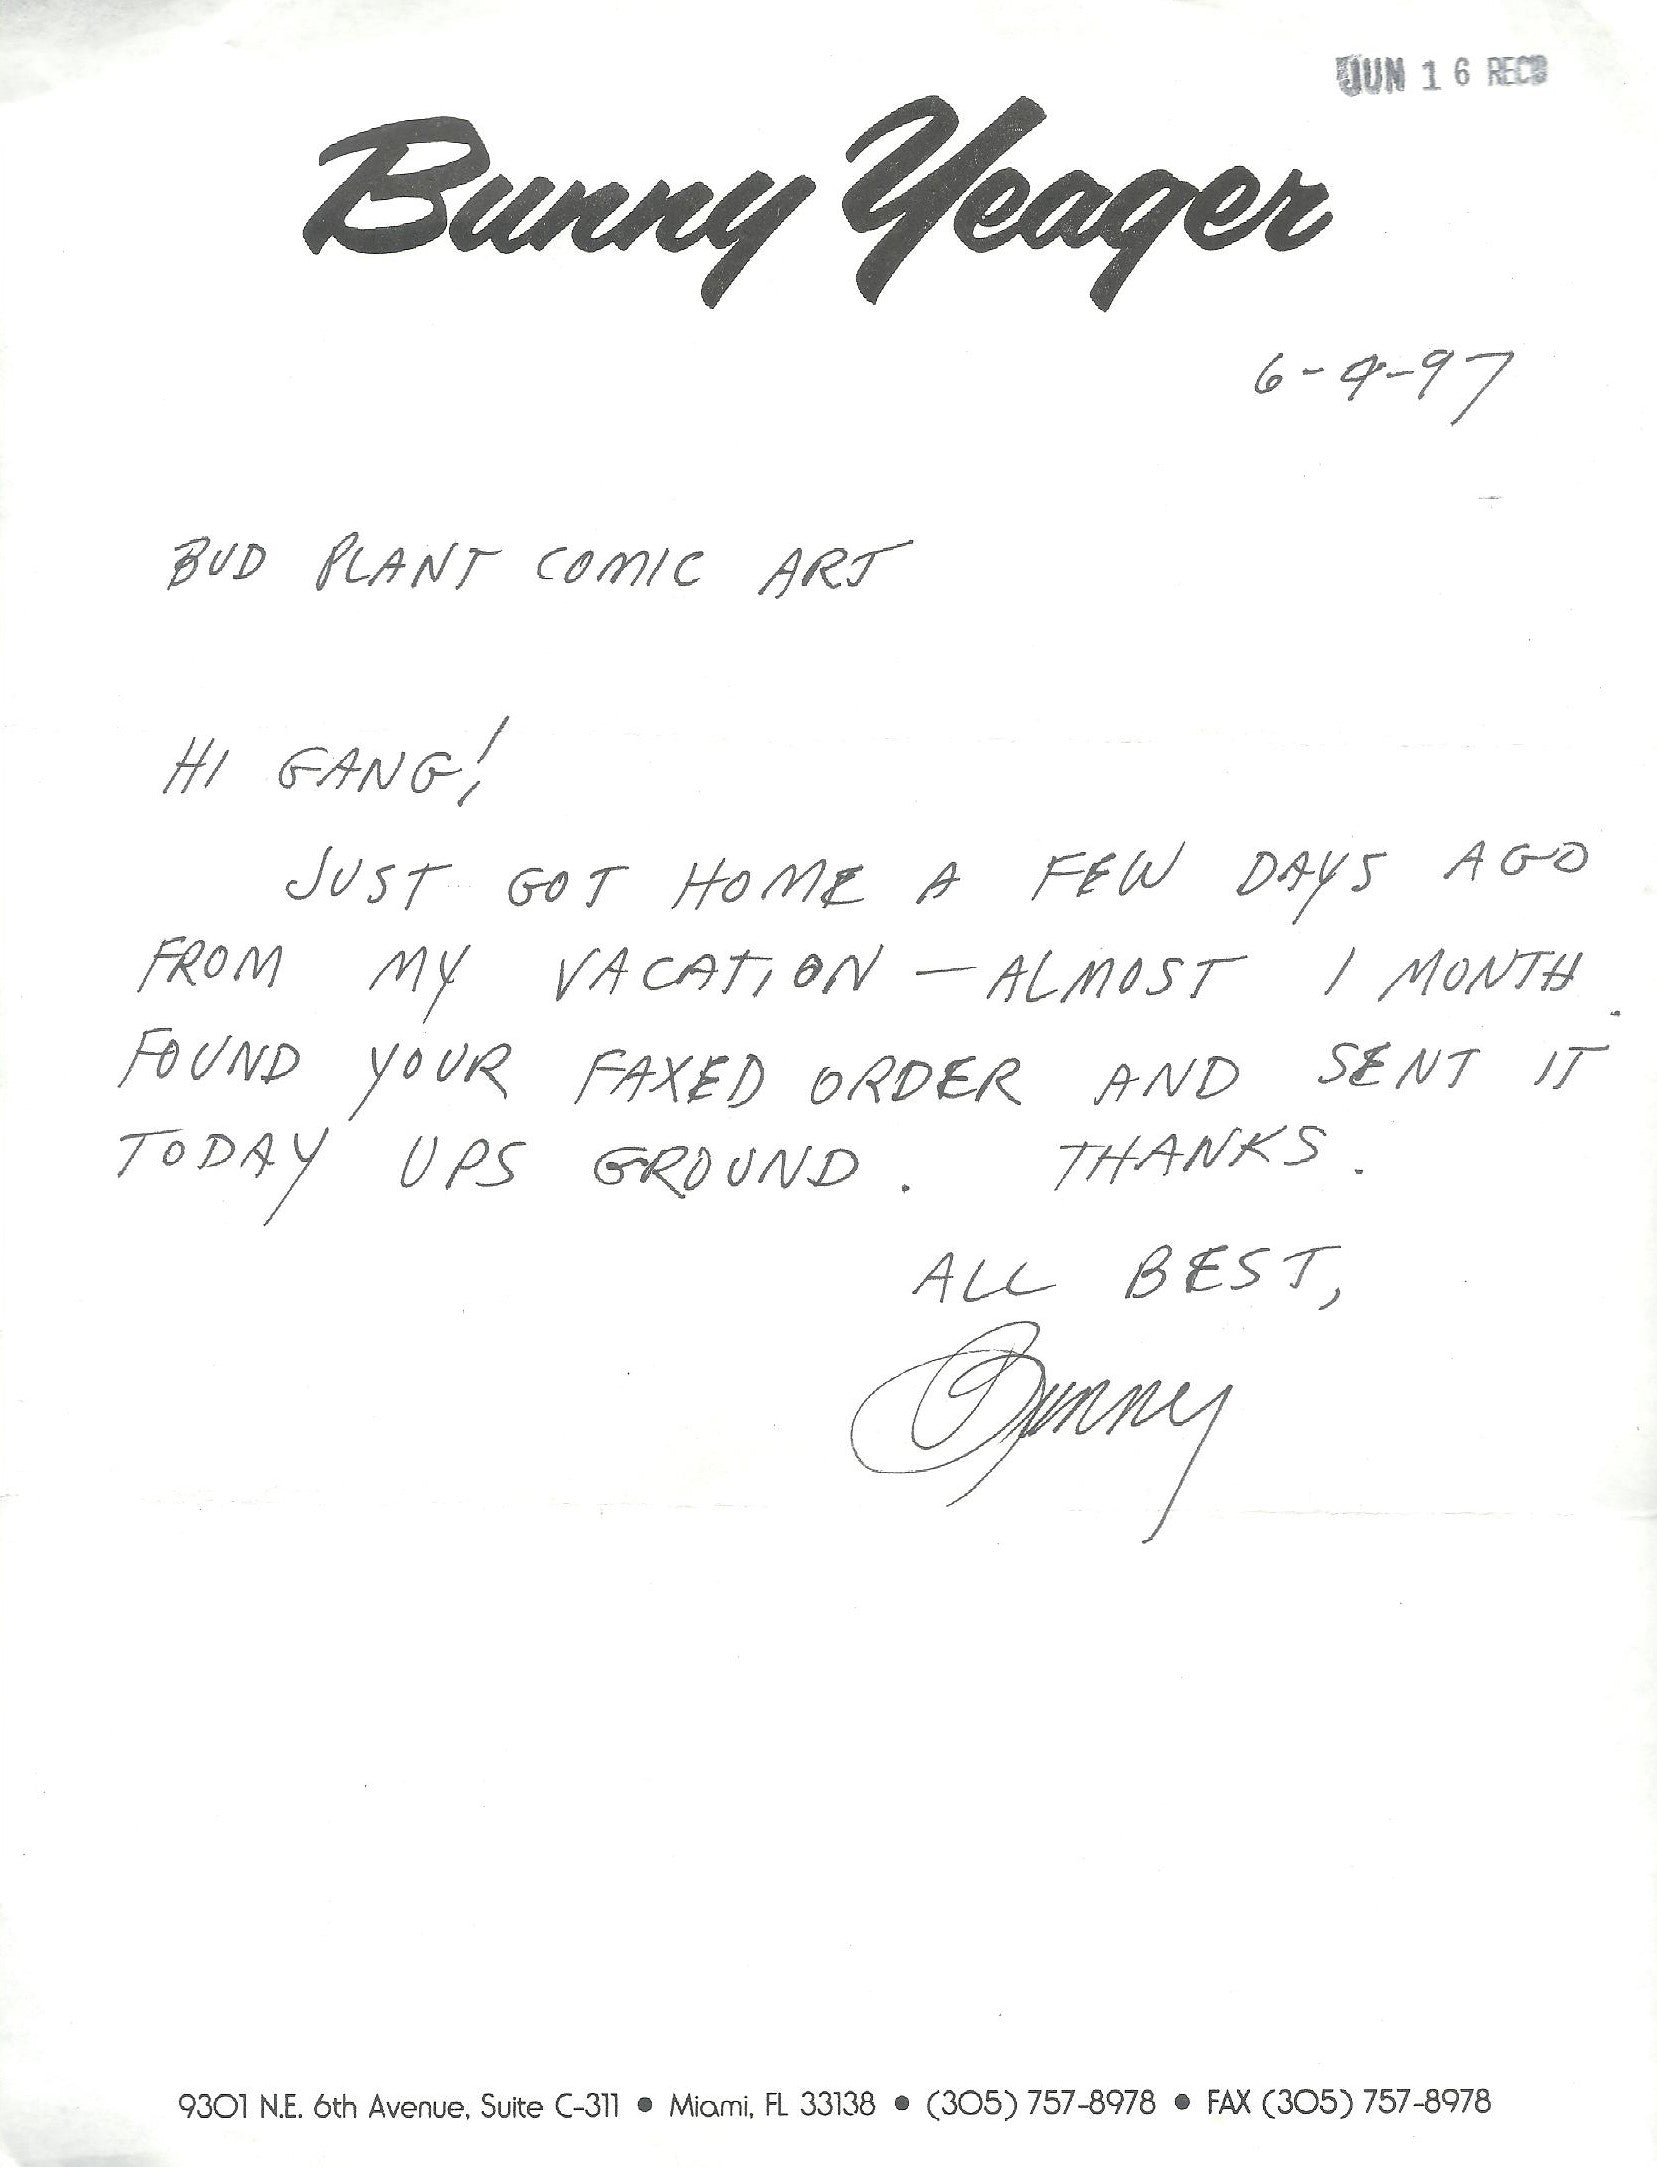 JUN 16 RECD
Bunny Yeager
6-4-97
BUD PLANT COMIC ART
HI GANG!
JUST GOT HOME A FEW DAYS AGO
FROM MY VACATION — ALMOST 1 MONTH.
FOUND YOUR FAXED ORDER AND SENT IT
TODAY UPS GROUND. THANKS.
ALL BEST,
Bunny
9301 N.E. 6th Avenue, Suite C-311 • Miami, FL 33138 • (305) 757-8978 • FAX (305) 757-8978